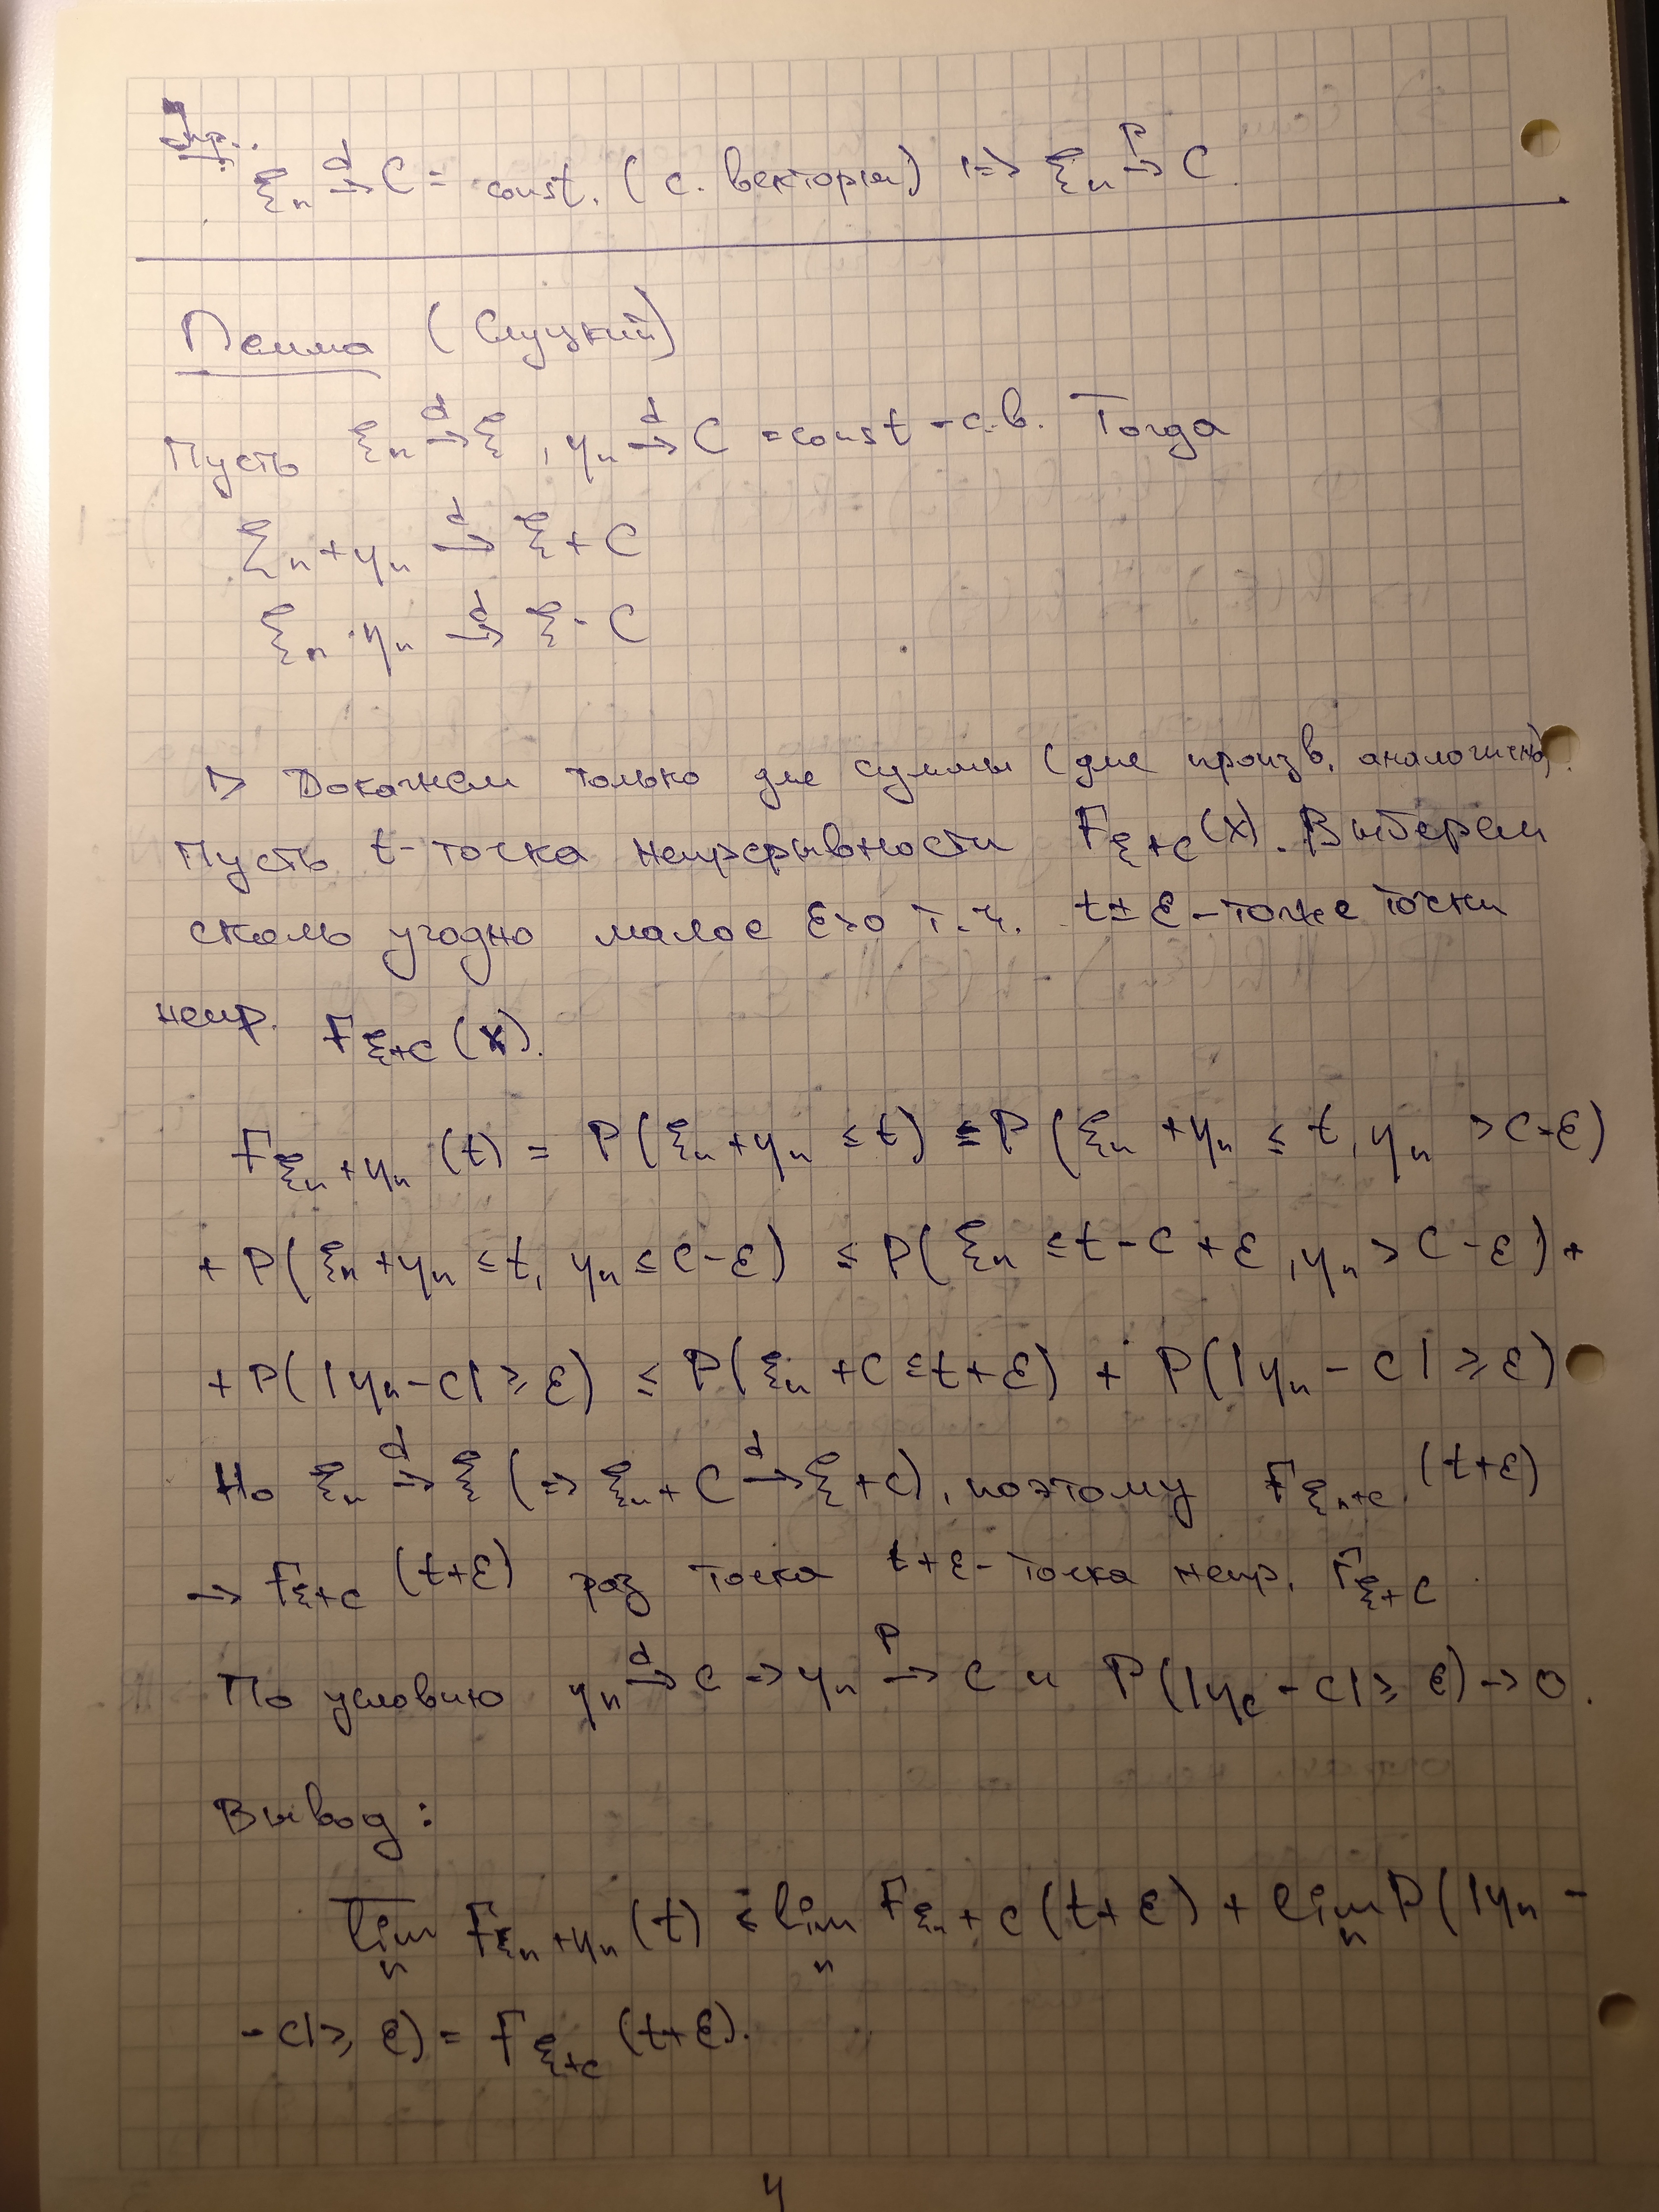 Упр.:
ξₙ →ᵈ C = const. (с. векторы) ⇒ ξₙ →ᴾ C.
Лемма (Слуцкий)
Пусть ξₙ →ᵈ ξ, ηₙ →ᵈ C = const - с.в. Тогда
ξₙ + ηₙ →ᵈ ξ + C
ξₙ · ηₙ →ᵈ ξ · C
▷ Докажем только для суммы (для произв. аналогично).
Пусть t - точка непрерывности F_{ξ+c}(x). Выберем
сколь угодно малое ε>0 т.ч. t ± ε - тоже точки
непр. F_{ξ+c}(x).
F_{ξₙ+ηₙ}(t) = P(ξₙ + ηₙ ≤ t) ≤ P(ξₙ + ηₙ ≤ t, ηₙ > C-ε)
+ P(ξₙ + ηₙ ≤ t, ηₙ ≤ C-ε) ≤ P(ξₙ ≤ t - C + ε, ηₙ > C - ε) +
+ P(|ηₙ - C| ≥ ε) ≤ P(ξₙ + C ≤ t + ε) + P(|ηₙ - C| ≥ ε)
Но ξₙ →ᵈ ξ (⇒ ξₙ + C →ᵈ ξ + c), поэтому F_{ξₙ+c}(t+ε)
→ F_{ξ+c}(t+ε) раз точка t+ε - точка непр. F_{ξ+c}.
По условию ηₙ →ᵈ C → ηₙ →ᴾ C и P(|η_c - C| ≥ ε) → 0.
Вывод:
\overline{lim}_n F_{ξₙ+ηₙ}(t) ≤ lim_n F_{ξₙ+c}(t+ε) + lim_n P(|ηₙ -
- C| ≥ ε) = F_{ξ+c}(t+ε).
4